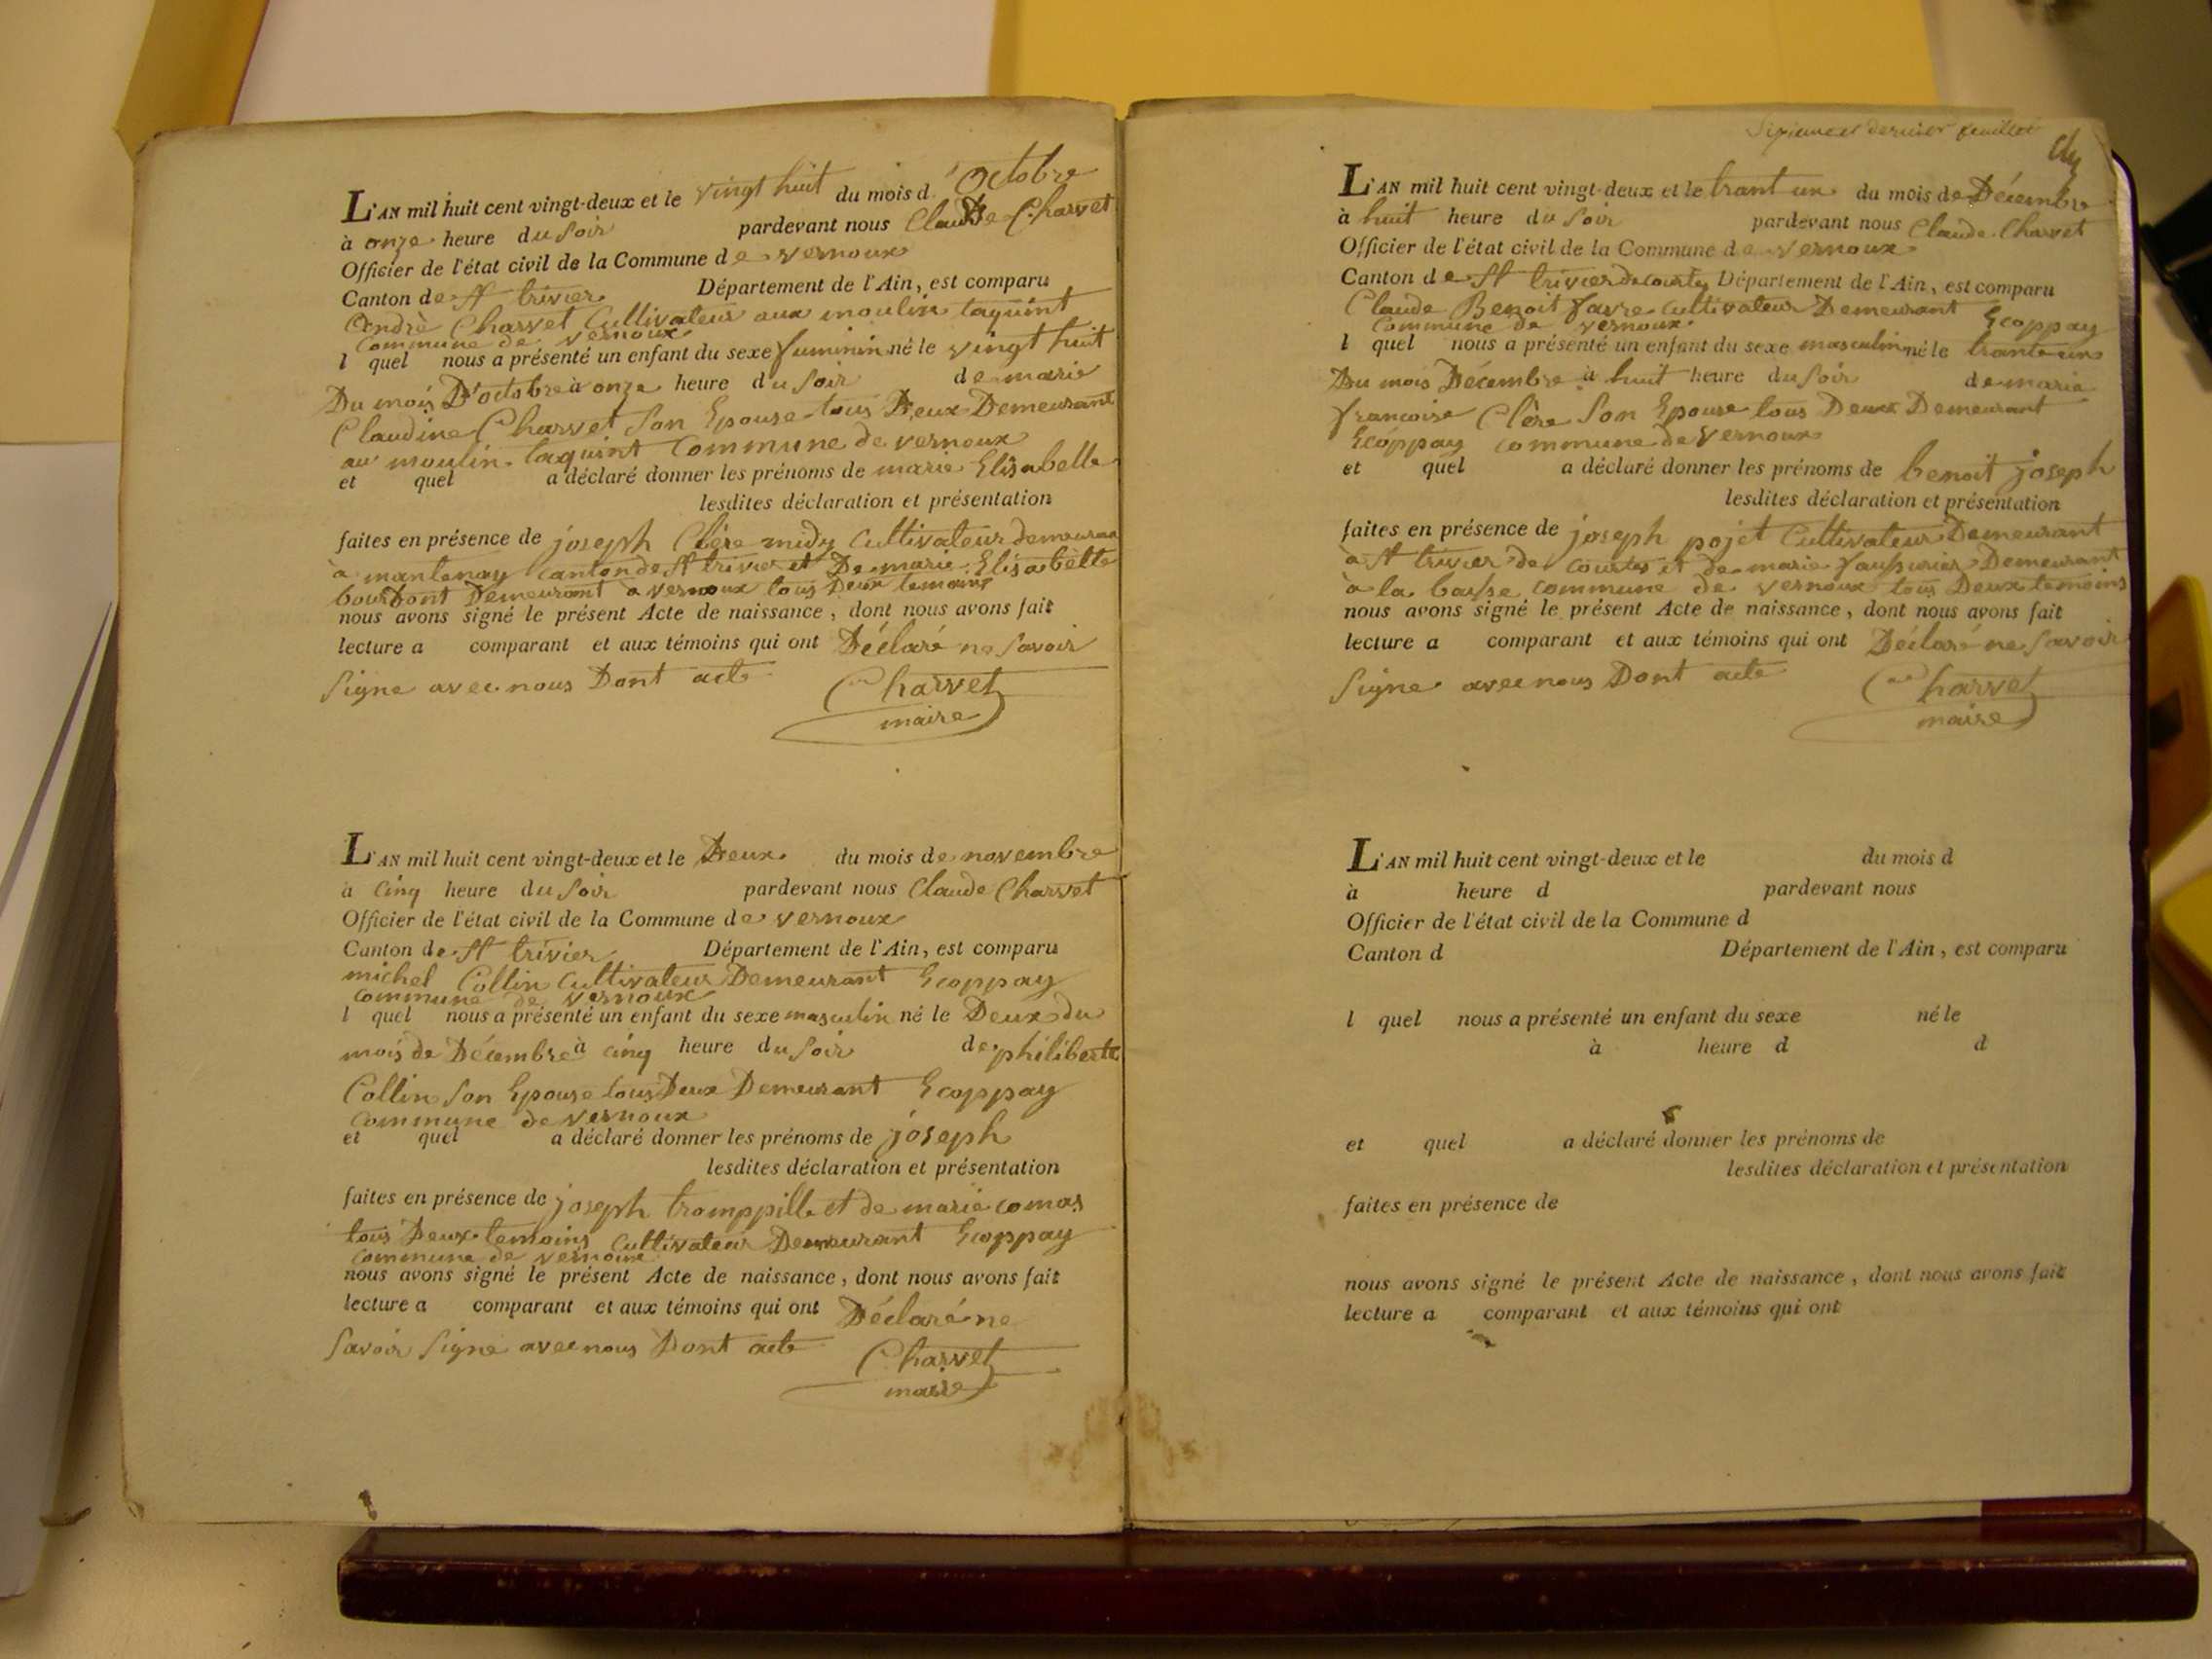 L'AN mil huit cent vingt-deux et le vingt huit du mois d'Octobre
à onze heure du soir pardevant nous Claude Charvet
Officier de l'état civil de la Commune de vernoux
Canton de St trivier Département de l'Ain, est comparu
Andrè Charvet Cultivateur aux moulin taquint
Commune de vernoux
l quel nous a présenté un enfant du sexe fuminin né le vingt huit
Du mois D'octobre à onze heure du soir de marie
Claudine Charvet son Epouse tous Deux Demeurant
au moulin taquint Commune de vernoux
et quel a déclaré donner les prénoms de marie Elisabelle
lesdites déclaration et présentation
faites en présence de joseph Clère midy Cultivateur demeuran
à mantenay canton de St trivier et De marie Elisabette
bourdont Demeurant à vernoux tous Deux temoins
nous avons signé le présent Acte de naissance, dont nous avons fait
lecture a comparant et aux témoins qui ont Déclaré ne savoir
signe avec nous Dont acte
Charvet
maire
L'AN mil huit cent vingt-deux et le Deux du mois de novembre
à cinq heure du soir pardevant nous Claude Charvet
Officier de l'état civil de la Commune de vernoux
Canton de St trivier Département de l'Ain, est comparu
michel Collin Cultivateur Demeurant Ecoppay
commune de vernoux
l quel nous a présenté un enfant du sexe masculin né le Deux du
mois de Décembre à cinq heure du soir de philiberte
Collin son Epouse tous Deux Demeurant Ecoppay
commune de vernoux
et quel a déclaré donner les prénoms de joseph
lesdites déclaration et présentation
faites en présence de joseph tromppille et de marie comas
tous Deux temoins Cultivateur Demeurant Ecoppay
commune de vernoux
nous avons signé le présent Acte de naissance, dont nous avons fait
lecture a comparant et aux témoins qui ont Déclaré ne
savoir signe avec nous Dont acte
Charvet
maire
Sixieme et dernier feuillet
L'AN mil huit cent vingt-deux et le trant un du mois de Décembre
à huit heure du soir pardevant nous Claude Charvet
Officier de l'état civil de la Commune de vernoux
Canton de St trivier de courtes Département de l'Ain, est comparu
Claude Benoit favre cultivateur Demeurant Ecoppay
commune de vernoux
l quel nous a présenté un enfant du sexe masculin né le trante un
Du mois Décembre à huit heure du soir de marie
francoise Clère son Epouse tous Deux Demeurant
Ecoppay commune de vernoux
et quel a déclaré donner les prénoms de benoit joseph
lesdites déclaration et présentation
faites en présence de joseph pojet Cultivateur Demeurant
à St trivier de courtes et de marie Demeurant
à la commune de vernoux tous Deux temoins
nous avons signé le présent Acte de naissance, dont nous avons fait
lecture a comparant et aux témoins qui ont Déclaré ne savoir
signe avec nous Dont acte
Charvet
maire
L'AN mil huit cent vingt-deux et le du mois d
à heure d pardevant nous
Officier de l'état civil de la Commune d
Canton d Département de l'Ain, est comparu
l quel nous a présenté un enfant du sexe né le
à heure d d
et quel a déclaré donner les prénoms de
lesdites déclaration et présentation
faites en présence de
nous avons signé le présent Acte de naissance, dont nous avons fait
lecture a comparant et aux témoins qui ont